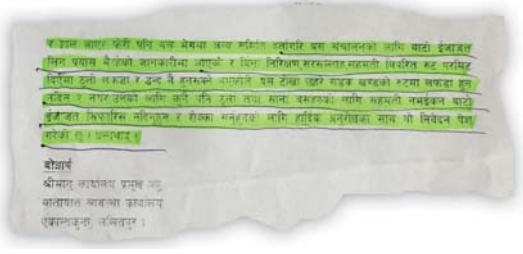 र हाल आएर फेरी पनि यस क्षेत्रमा अन्य समिति दर्तागरि बस संचालनको लागि बाटो ईजाजत
लिने प्रयास भैरहेको जानकारीमा आएको र बिना निरिक्षण सरसल्लाह सहमती विपरित रुट परमिट
दिएमा ठुलो लफडा र द्वन्द नै हुनसक्ने भएकोले यस टोखा सडक खण्डको रुटमा लफडा हुन
नदिन र नगर उनको लागि कुनै पनि ठुला तथा साना बसहरुको लागि सहमती नभईकन बाटो
ईजाजत सिफारिस नदिनहुन र रोक्का गर्नुहुनको लागि हार्दिक अनुरोधका साथ यो निवेदन पेश
गरेको छु । धन्यवाद ।
बोधार्थ
श्रीमान् कार्यालय प्रमुख ज्यू,
यातायात व्यवस्था कार्यालय
एकान्तकुना, ललितपुर ।